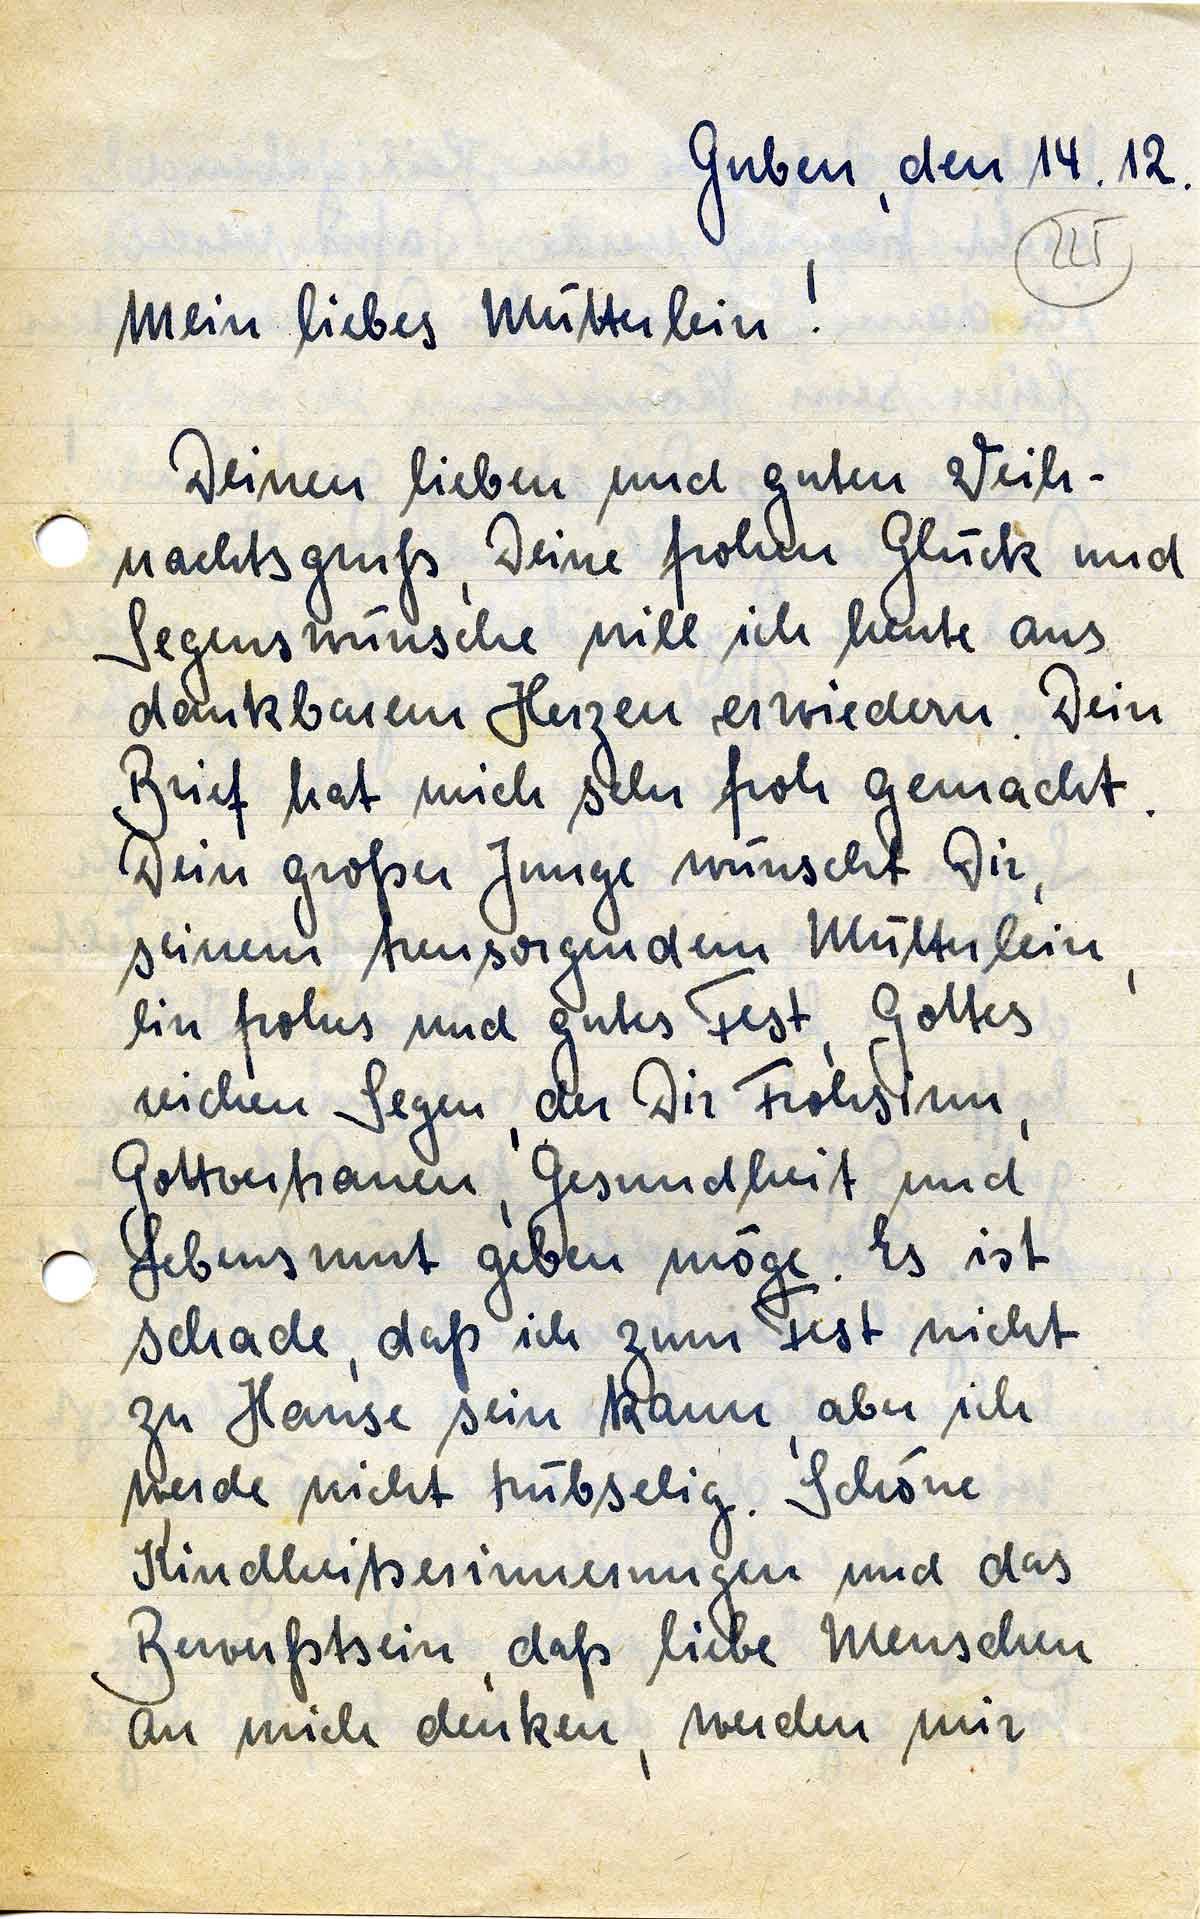 Guben, den 14. 12.
225
Mein liebes Mütterlein!
Deinen lieben und guten Weih-
nachtsgruß, Deine frohen Glück und
Segenswünsche will ich heute aus
dankbarem Herzen erwiedern. Dein
Brief hat mich sehr froh gemacht.
Dein großer Junge wünscht Dir,
seinem treusorgendem Mütterlein,
ein frohes und gutes Fest, Gottes
reichen Segen, der Dir Frohsinn,
Gottvertrauen, Gesundheit und
Lebensmut geben möge. Es ist
schade, daß ich zum Fest nicht
zu Hause sein kann, aber ich
werde nicht trübselig. Schöne
Kindheitserinnerungen und das
Bewußtsein, daß liebe Menschen
an mich denken, werden mir